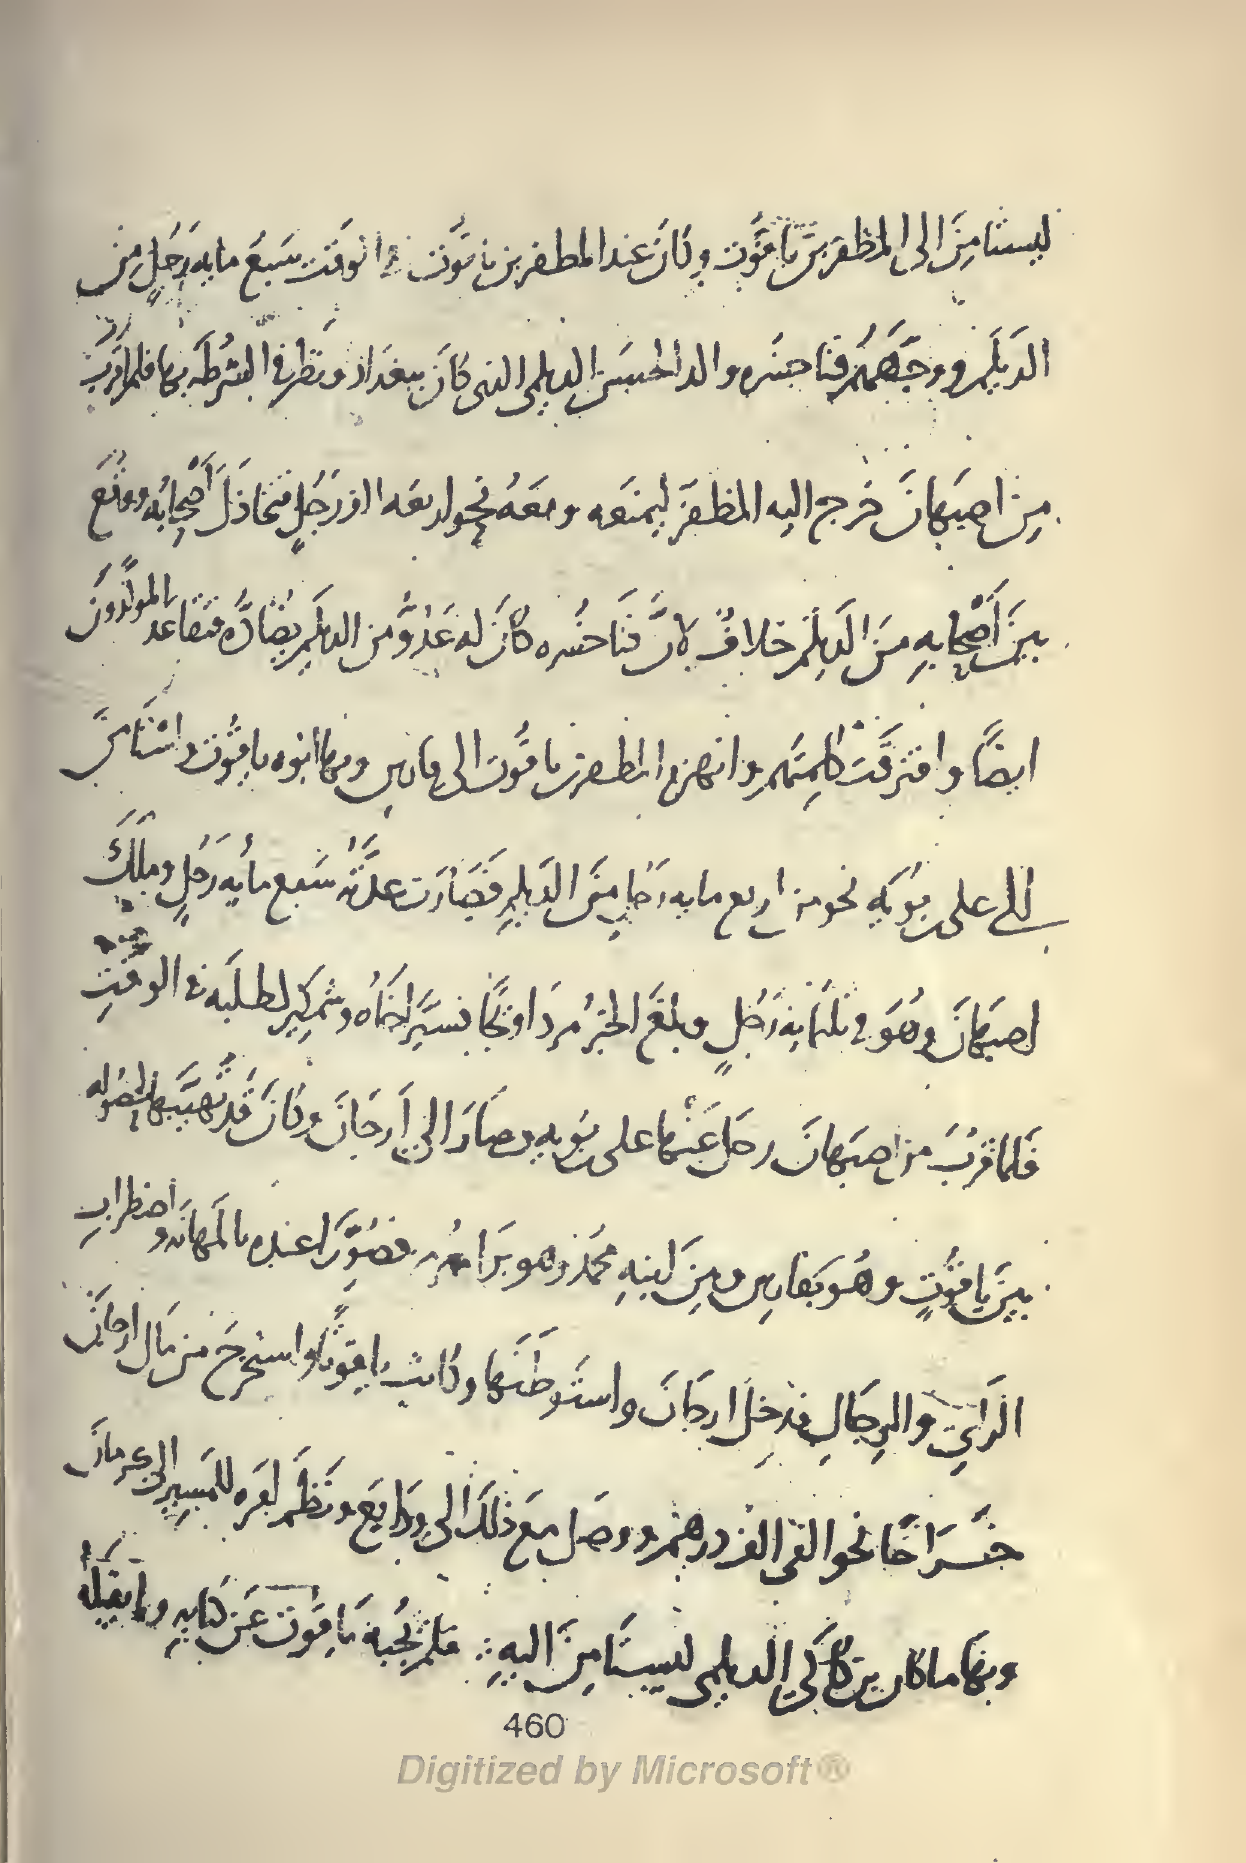 ليستامن الى المظفر بن ياقوت وكان عند المظفر بن ياقوت في الوقت سبع مايه رجل من
الديلم ووجههم فناخسره والد الحسن الديلمي الذي كان ببغداد ونظر في الشرطه بها فلما قرب
من اصبهان خرج اليه المظفر ليمنعه ومعه نحو اربعه الف رجل فتخاذل أصحابه ووقع
بين أصحابه من الديلم خلاف لان فناخسره كان له عدو من الديلم يضاده فتقاعد المولدون
ايضا وافترقت كلمتهم وانهزم المظفر بن ياقوت الى فارس وبها ابوه ياقوت واستامن
الى على بن بويه نحو من اربع مايه رجل من الديلم فصارت عدته سبع مايه رجل وملك
اصبهان وهو في ثلثمايه رجل وبلغ الخبر مرداويج فسير اخاه وشمكير لطلبه في الوقت
فلما قرب من اصبهان رحل عنها على بن بويه وصار الى ارجان وكان قد تهيبها لحصوله
بين ياقوت وهو بفارس وبين ابنه محمد وهو برامهرمز فصورا عنده بالمهانه واضطراب
الراي والرجال فدخل ارجان واستوطنها وكاتب ياقوتا واستخرج من مال ارجان
خراجا نحو الفي الف درهم ووصل مع ذلك الى ودايع ونظم امره للمسير الى كرمان
وبها ماكان بن كاكي الديلمي ليستامن اليه فلم يجبه ياقوت عن كتابه ولم يقبله
460
Digitized by Microsoft®